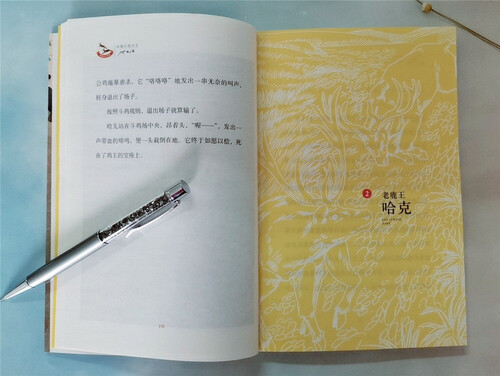 公鸡能暴虐杀，它“咯咯咯”地发出一串无奈的叫声，
转身退出了场子。
按照斗鸡规则，退出场子就算输了。
哈戈站在斗鸡场中央，昂着头，“喔——”，发出一
声带血的啼鸣，便一头栽倒在地。它终于如愿以偿，死
在了鸡王的宝座上。
2
老鹿王
哈克